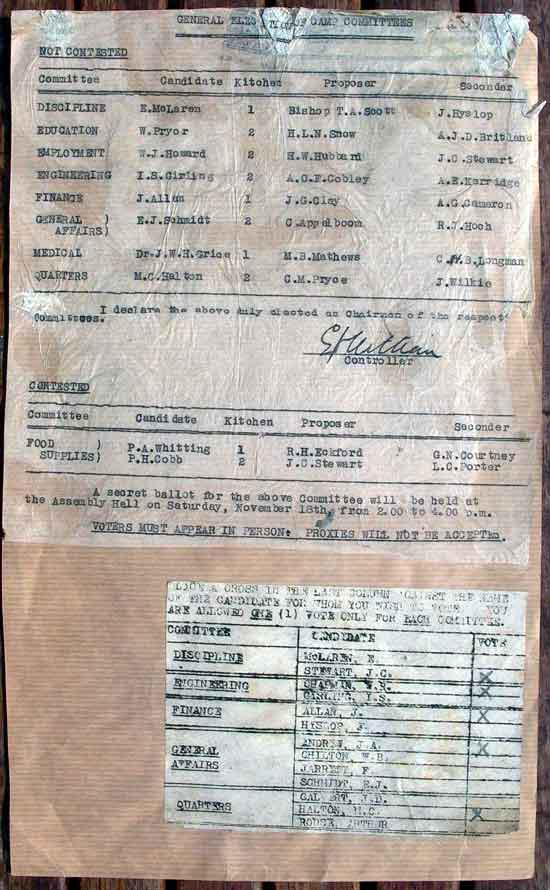 GENERAL ELECTION OF CAMP COMMITTEES
NOT CONTESTED
Committee Candidate Kitchen Proposer Seconder
DISCIPLINE E.McLaren 1 Bishop T.A.Scott J.Hyslop
EDUCATION W.Pryor 2 H.L.N.Snow A.J.D.Britland
EMPLOYMENT W.J.Howard 2 H.W.Hubbard J.C.Stewart
ENGINEERING I.S.Girling 2 A.C.F.Cobley A.E.Kerridge
FINANCE J.Allan 1 J.G.Clay A.G.Cameron
GENERAL )
AFFAIRS) E.J.Schmidt 2 C.Appelboom R.J.Hoch
MEDICAL Dr.J.W.H.Grice 1 M.B.Mathews C.H.B.Longman
QUARTERS M.C.Halton 2 C.M.Pryce J.Wilkie
I declare the above duly elected as Chairman of the respect
Committees.
Controller
CONTESTED
Committee Candidate Kitchen Proposer Seconder
FOOD ) P.A.Whitting 1 R.H.Eckford G.N.Courtney
SUPPLIES) P.H.Cobb 2 J.C.Stewart L.C.Porter
A secret ballot for the above Committee will be held at
the Assembly Hall on Saturday, November 18th, from 2.00 to 4.00 p.m.
VOTERS MUST APPEAR IN PERSON: PROXIES WILL NOT BE ACCEPTED.
A CROSS IN THE LAST COLUMN AGAINST THE NAME
OF THE CANDIDATE FOR WHOM YOU WISH TO VOTE YOU
ARE ALLOWED ONE (1) VOTE ONLY FOR EACH COMMITTEE.
COMMITTEE CANDIDATE VOTE
DISCIPLINE McLAREN, E.
STEWART, J.C. X
ENGINEERING CHAPMAN, W.R. X
GIRLING, I.S.
FINANCE ALLAN, J. X
HYSLOP, J.
GENERAL AFFAIRS ANDREW, J.A. X
CHILTON, W.B.
JARRETT, F.
SCHMIDT, E.J.
QUARTERS CALVERT, J.D.
HALTON, M.C. X
ARTHUR